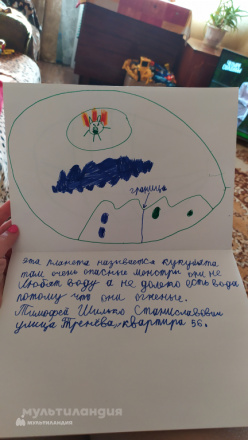 граница
эта планета называется кукубята
там очень опасные монстри они не
любят воду а не долеко есть вода
потому что они огненые.
Тимофей Шилко Станиславович
улица Тренёва квартира 56.
мультиландия
МУЛЬТИЛАНДИЯ